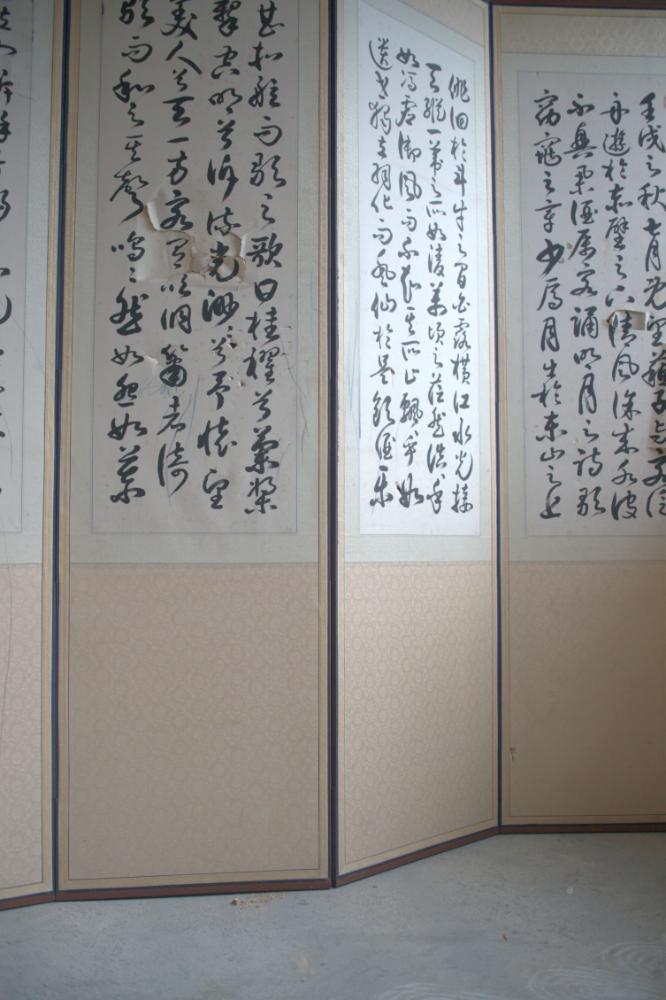 壬戌之秋七月既望蘇子與客泛
舟遊於赤壁之下清風徐來水波
不興舉酒屬客誦明月之詩歌
窈窕之章少焉月出於東山之上
徘徊於斗牛之間白露橫江水光接
天縱一葦之所如凌萬頃之茫然浩浩乎
如馮虛御風而不知其所止飄飄乎如
遺世獨立羽化而登仙於是飲酒樂
甚扣舷而歌之歌曰桂櫂兮蘭槳
擊空明兮泝流光渺渺兮予懷望
美人兮天一方客有吹洞簫者倚
歌而和之其聲嗚嗚然如怨如慕